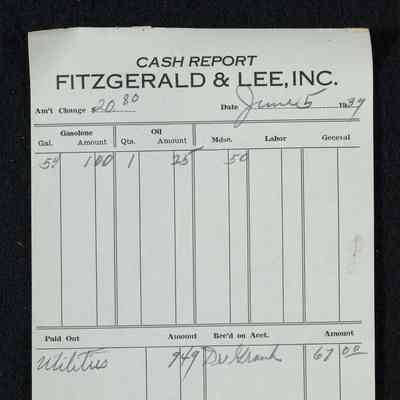 CASH REPORT
FITZGERALD & LEE, INC.
Am't Change $20.80 Date June 5 1937
Gasolene Oil Mdse. Labor General
Gal. Amount Qts. Amount
1 00 1 25 50
Paid Out Amount Rec'd on Acct. Amount
Utilities 9 49 67 00